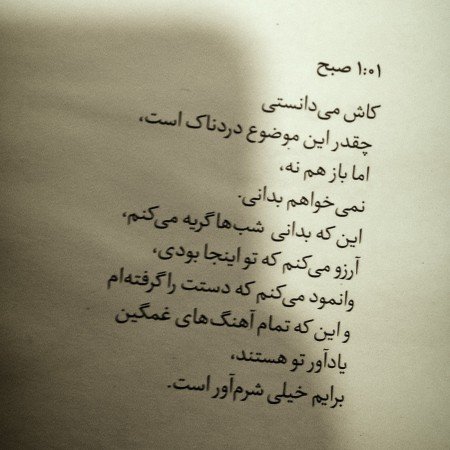 ۱:۰۱ صبح
کاش می‌دانستی
چقدر این موضوع دردناک است،
اما باز هم نه،
نمی‌خواهم بدانی.
این که بدانی شب‌ها گریه می‌کنم،
آرزو می‌کنم که تو اینجا بودی،
وانمود می‌کنم که دستت را گرفته‌ام
و این که تمام آهنگ‌های غمگین
یادآور تو هستند،
برایم خیلی شرم‌آور است.